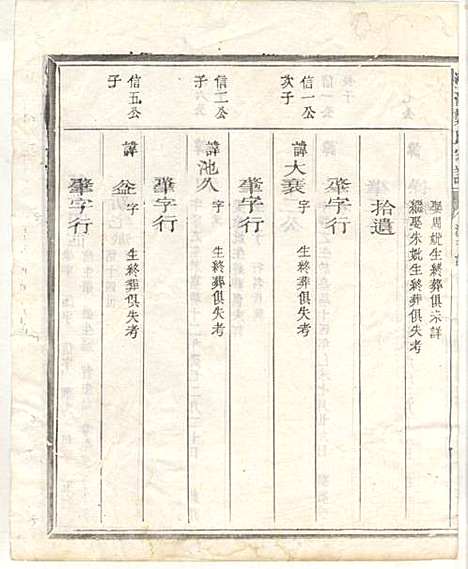 娶周妣生終葬俱未詳
繼娶朱妣生終葬俱失考
拾遺
肇字行
信一公
次子
諱大袞字
生終葬俱失考
肇字行
信二公
子
諱池久字
生終葬俱失考
肇字行
信五公
子
諱益字
生終葬俱失考
肇字行